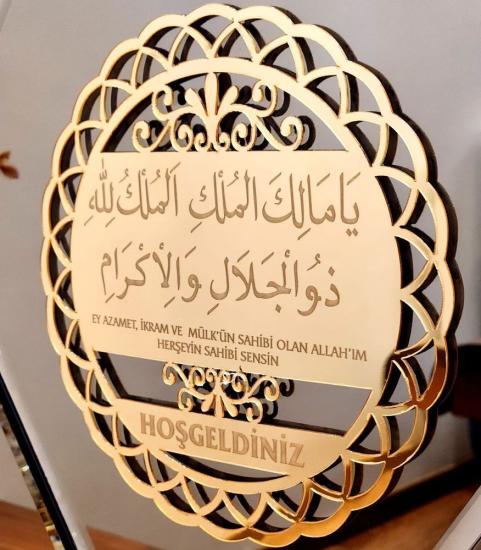 يَا مَالِكَ المُلْكِ اَلمُلْكُ لِلّٰهِ
ذُو الْجَلَالِ وَالْاِكْرَامِ
EY AZAMET, İKRAM VE MÜLK'ÜN SAHİBİ OLAN ALLAH'IM
HERŞEYİN SAHİBİ SENSİN
HOŞGELDİNİZ